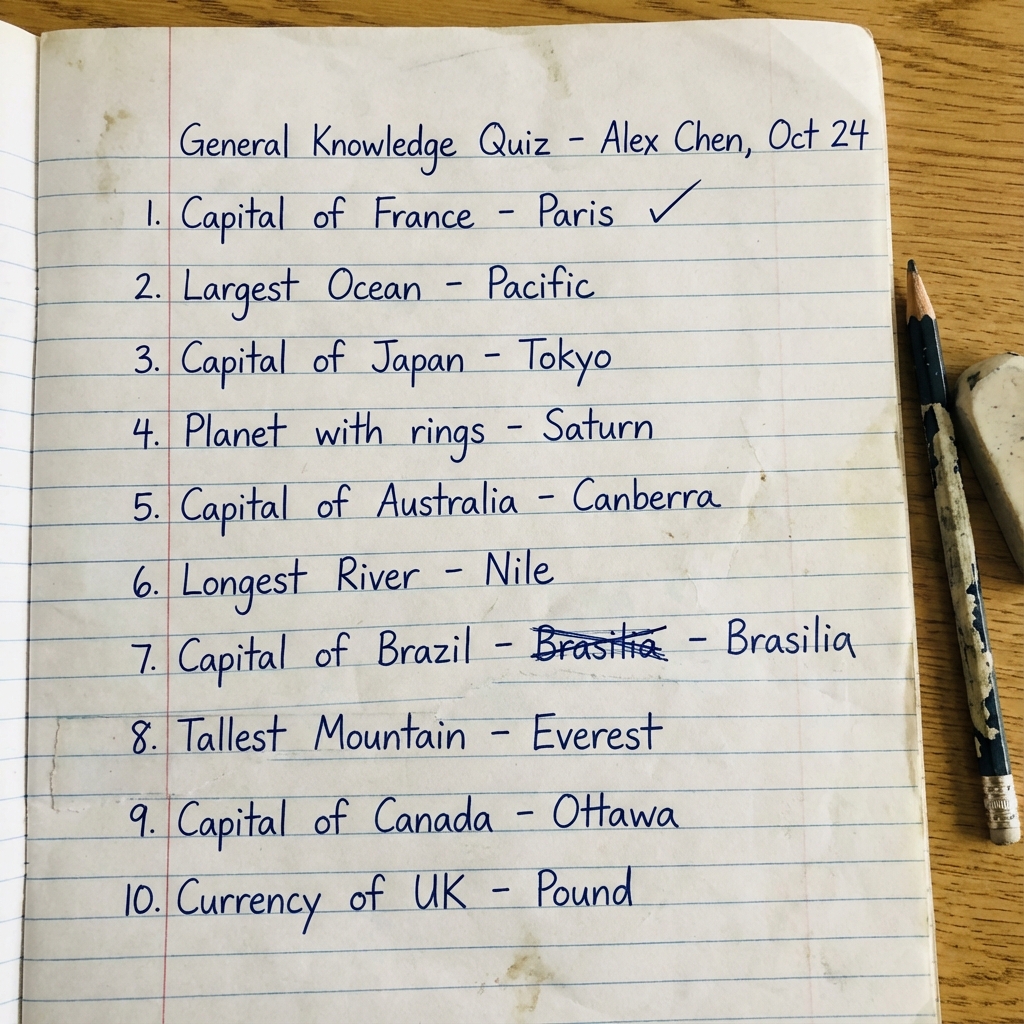 General Knowledge Quiz - Alex Chen, Oct 24
1. Capital of France - Paris ✓
2. Largest Ocean - Pacific
3. Capital of Japan - Tokyo
4. Planet with rings - Saturn
5. Capital of Australia - Canberra
6. Longest River - Nile
7. Capital of Brazil - Brasilia - Brasilia
8. Tallest Mountain - Everest
9. Capital of Canada - Ottawa
10. Currency of UK - Pound